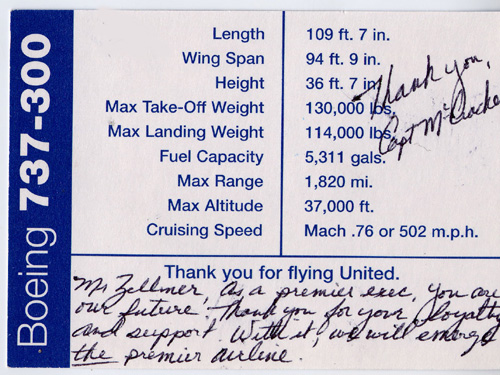 Boeing 737-300
Length 109 ft. 7 in.
Wing Span 94 ft. 9 in.
Height 36 ft. 7 in.
Max Take-Off Weight 130,000 lbs.
Max Landing Weight 114,000 lbs.
Fuel Capacity 5,311 gals.
Max Range 1,820 mi.
Max Altitude 37,000 ft.
Cruising Speed Mach .76 or 502 m.p.h.
Thank you,
Capt
Thank you for flying United.
Mr Zellmer, as a premier exec, you are
our future. Thank you for your loyalty
and support. With it, we will emerge
the premier airline.